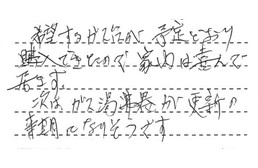 希望するガス台が予定どおり
購入できたので家内は喜んで
居ます
次はガス湯沸器が更新の
時期になりそうです